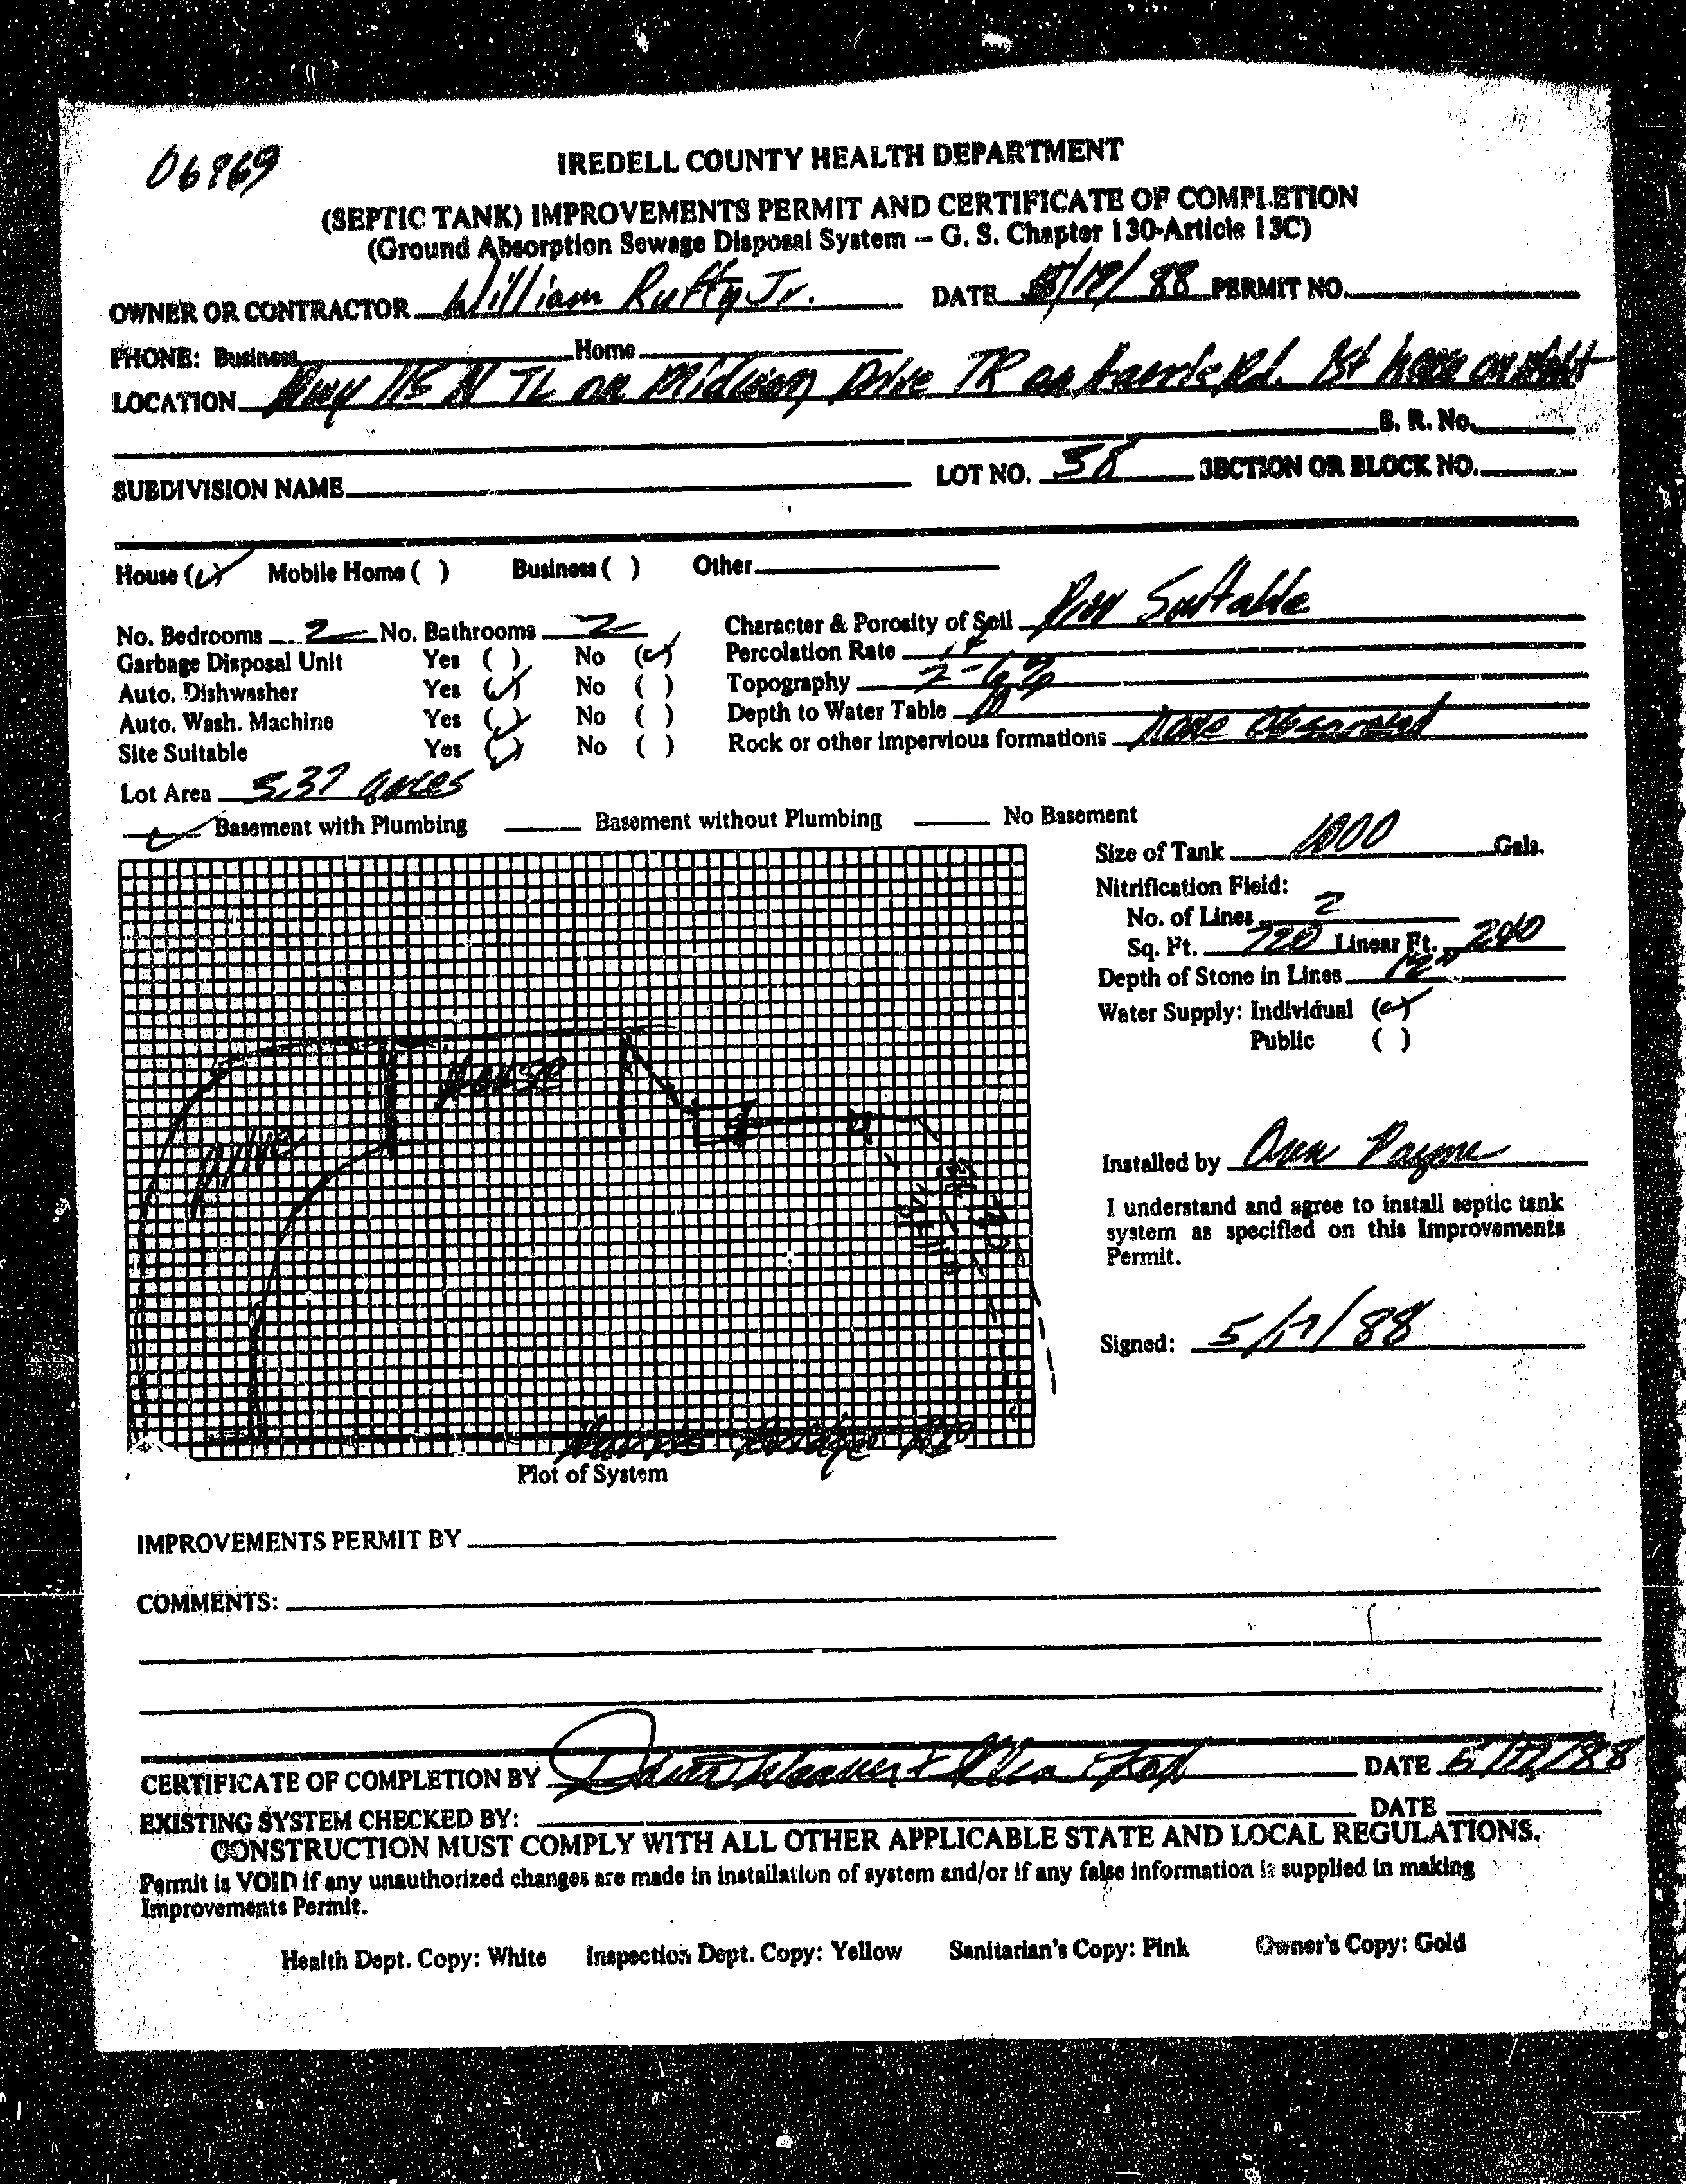 06969
IREDELL COUNTY HEALTH DEPARTMENT
(SEPTIC TANK) IMPROVEMENTS PERMIT AND CERTIFICATE OF COMPLETION
(Ground Absorption Sewage Disposal System – G. S. Chapter 130-Article 13C)
OWNER OR CONTRACTOR William Rufty Jr. DATE 5/17/88 PERMIT NO.
PHONE: Business Home
LOCATION Hwy 115 N TL on Midway Drive TR on Rd. 1st house on right
S. R. No.
SUBDIVISION NAME LOT NO. 38 SECTION OR BLOCK NO.
House (✓) Mobile Home ( ) Business ( ) Other
No. Bedrooms 2 No. Bathrooms 2 Character & Porosity of Soil Prov Suitable
Garbage Disposal Unit Yes ( ) No (✓) Percolation Rate
Auto. Dishwasher Yes (✓) No ( ) Topography 2-6%
Auto. Wash. Machine Yes (✓) No ( ) Depth to Water Table
Site Suitable Yes (✓) No ( ) Rock or other impervious formations None Observed
Lot Area 5.37 acres
✓ Basement with Plumbing Basement without Plumbing No Basement
Size of Tank 1000 Gals.
Nitrification Field:
No. of Lines 2
Sq. Ft. 720 Linear Ft. 240
Depth of Stone in Lines 12"
Water Supply: Individual (✓)
Public ( )
House
Drive
Installed by Payne
I understand and agree to install septic tank
system as specified on this Improvements
Permit.
Signed: 5/17/88
Bridge Rd
Plot of System
IMPROVEMENTS PERMIT BY
COMMENTS:
CERTIFICATE OF COMPLETION BY Weaver DATE 5/17/88
EXISTING SYSTEM CHECKED BY: DATE
CONSTRUCTION MUST COMPLY WITH ALL OTHER APPLICABLE STATE AND LOCAL REGULATIONS.
Permit is VOID if any unauthorized changes are made in installation of system and/or if any false information is supplied in making
Improvements Permit.
Health Dept. Copy: White Inspection Dept. Copy: Yellow Sanitarian's Copy: Pink Owner's Copy: Gold